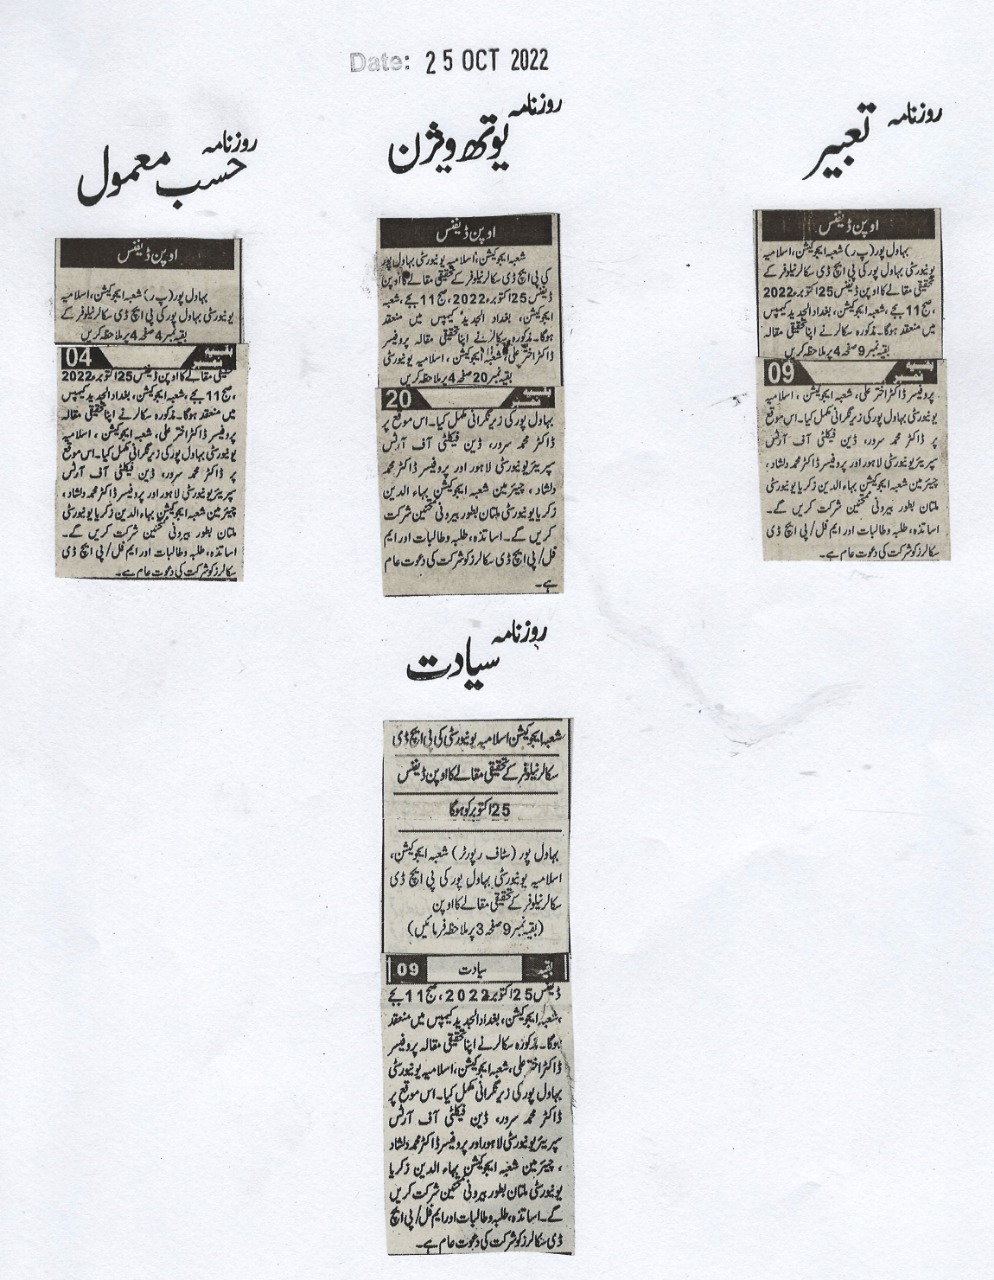 Date: 25 OCT 2022
روزنامہ تعبیر
اوپن ڈیفنس
بہاول پور(پ ر) شعبہ ایجوکیشن، اسلامیہ
یونیورسٹی بہاول پور کی پی ایچ ڈی سکالر نیلوفر کے
تحقیقی مقالے کا اوپن ڈیفنس 25 اکتوبر 2022
،صبح 11 بجے ،شعبہ ایجوکیشن، بغداد الجدید کیمپس
میں منعقد ہوگا۔ مذکورہ سکالر نے اپنا تحقیقی مقالہ
بقیہ نمبر 9 صفحہ 4 پر ملاحظہ کریں
بقیہ نمبر 09
پروفیسر ڈاکٹر اختر علی، شعبہ ایجوکیشن، اسلامیہ
یونیورسٹی بہاول پور کی زیر نگرانی مکمل کیا۔ اس موقع
پر ڈاکٹر محمد سرور، ڈین فیکلٹی آف آرٹس
سپریئر یونیورسٹی لاہور اور پروفیسر ڈاکٹر محمد دلشاد،
چیئرمین شعبہ ایجوکیشن بہاء الدین زکریا یونیورسٹی
ملتان بطور بیرونی ممتحنین شرکت کریں گے۔
اساتذہ، طلبہ و طالبات اور ایم فل/ پی ایچ ڈی
سکالرز کو شرکت کی دعوت عام ہے۔
روزنامہ یوتھ ویژن
اوپن ڈیفنس
شعبہ ایجوکیشن، اسلامیہ یونیورسٹی بہاول پور
کی پی ایچ ڈی سکالر نیلوفر کے تحقیقی مقالے کا اوپن
ڈیفنس 25 اکتوبر 2022، صبح 11 بجے ،شعبہ
ایجوکیشن، بغداد الجدید کیمپس میں منعقد
ہوگا۔ مذکورہ سکالر نے اپنا تحقیقی مقالہ پروفیسر
ڈاکٹر اختر علی، شعبہ ایجوکیشن ، اسلامیہ یونیورسٹی
بقیہ نمبر 20 صفحہ 4 پر ملاحظہ کریں
بقیہ نمبر 20
بہاول پور کی زیر نگرانی مکمل کیا۔ اس موقع پر
ڈاکٹر محمد سرور، ڈین فیکلٹی آف آرٹس
سپریئر یونیورسٹی لاہور اور پروفیسر ڈاکٹر محمد
دلشاد ، چیئرمین شعبہ ایجوکیشن بہاء الدین
زکریا یونیورسٹی ملتان بطور بیرونی ممتحنین شرکت
کریں گے۔ اساتذہ، طلبہ و طالبات اور ایم
فل/ پی ایچ ڈی سکالرز کو شرکت کی دعوت عام
ہے۔
روزنامہ حسب معمول
اوپن ڈیفنس
بہاول پور(پ ر) شعبہ ایجوکیشن، اسلامیہ
یونیورسٹی بہاول پور کی پی ایچ ڈی سکالر نیلوفر کے
بقیہ نمبر 4 صفحہ 4 پر ملاحظہ کریں
بقیہ نمبر 04
تحقیقی مقالے کا اوپن ڈیفنس 25 اکتوبر 2022
،صبح 11 بجے ،شعبہ ایجوکیشن، بغداد الجدید کیمپس
میں منعقد ہوگا۔ مذکورہ سکالر نے اپنا تحقیقی مقالہ
پروفیسر ڈاکٹر اختر علی، شعبہ ایجوکیشن ، اسلامیہ
یونیورسٹی بہاول پور کی زیر نگرانی مکمل کیا۔ اس موقع
پر ڈاکٹر محمد سرور، ڈین فیکلٹی آف آرٹس
سپریئر یونیورسٹی لاہور اور پروفیسر ڈاکٹر محمد دلشاد،
چیئرمین شعبہ ایجوکیشن بہاء الدین زکریا یونیورسٹی
ملتان بطور بیرونی ممتحنین شرکت کریں گے۔
اساتذہ، طلبہ و طالبات اور ایم فل/ پی ایچ ڈی
سکالرز کو شرکت کی دعوت عام ہے۔
روزنامہ سیادت
شعبہ ایجوکیشن اسلامیہ یونیورسٹی کی پی ایچ ڈی
سکالر نیلوفر کے تحقیقی مقالے کا اوپن ڈیفنس
25 اکتوبر کو ہوگا
بہاول پور (سٹاف رپورٹر) شعبہ ایجوکیشن،
اسلامیہ یونیورسٹی بہاول پور کی پی ایچ ڈی
سکالر نیلوفر کے تحقیقی مقالے کا اوپن
(بقیہ نمبر 9 صفحہ 3 پر ملاحظہ فرمائیں)
بقیہ سیادت 09
ڈیفنس 25 اکتوبر 2022، صبح 11 بجے
،شعبہ ایجوکیشن، بغداد الجدید کیمپس میں منعقد
ہوگا۔ مذکورہ سکالر نے اپنا تحقیقی مقالہ پروفیسر
ڈاکٹر اختر علی، شعبہ ایجوکیشن، اسلامیہ یونیورسٹی
بہاول پور کی زیر نگرانی مکمل کیا۔ اس موقع پر
ڈاکٹر محمد سرور، ڈین فیکلٹی آف آرٹس
سپریئر یونیورسٹی لاہور اور پروفیسر ڈاکٹر محمد دلشاد
، چیئرمین شعبہ ایجوکیشن بہاء الدین زکریا
یونیورسٹی ملتان بطور بیرونی ممتحنین شرکت کریں
گے۔ اساتذہ، طلبہ و طالبات اور ایم فل/ پی ایچ
ڈی سکالرز کو شرکت کی دعوت عام ہے۔